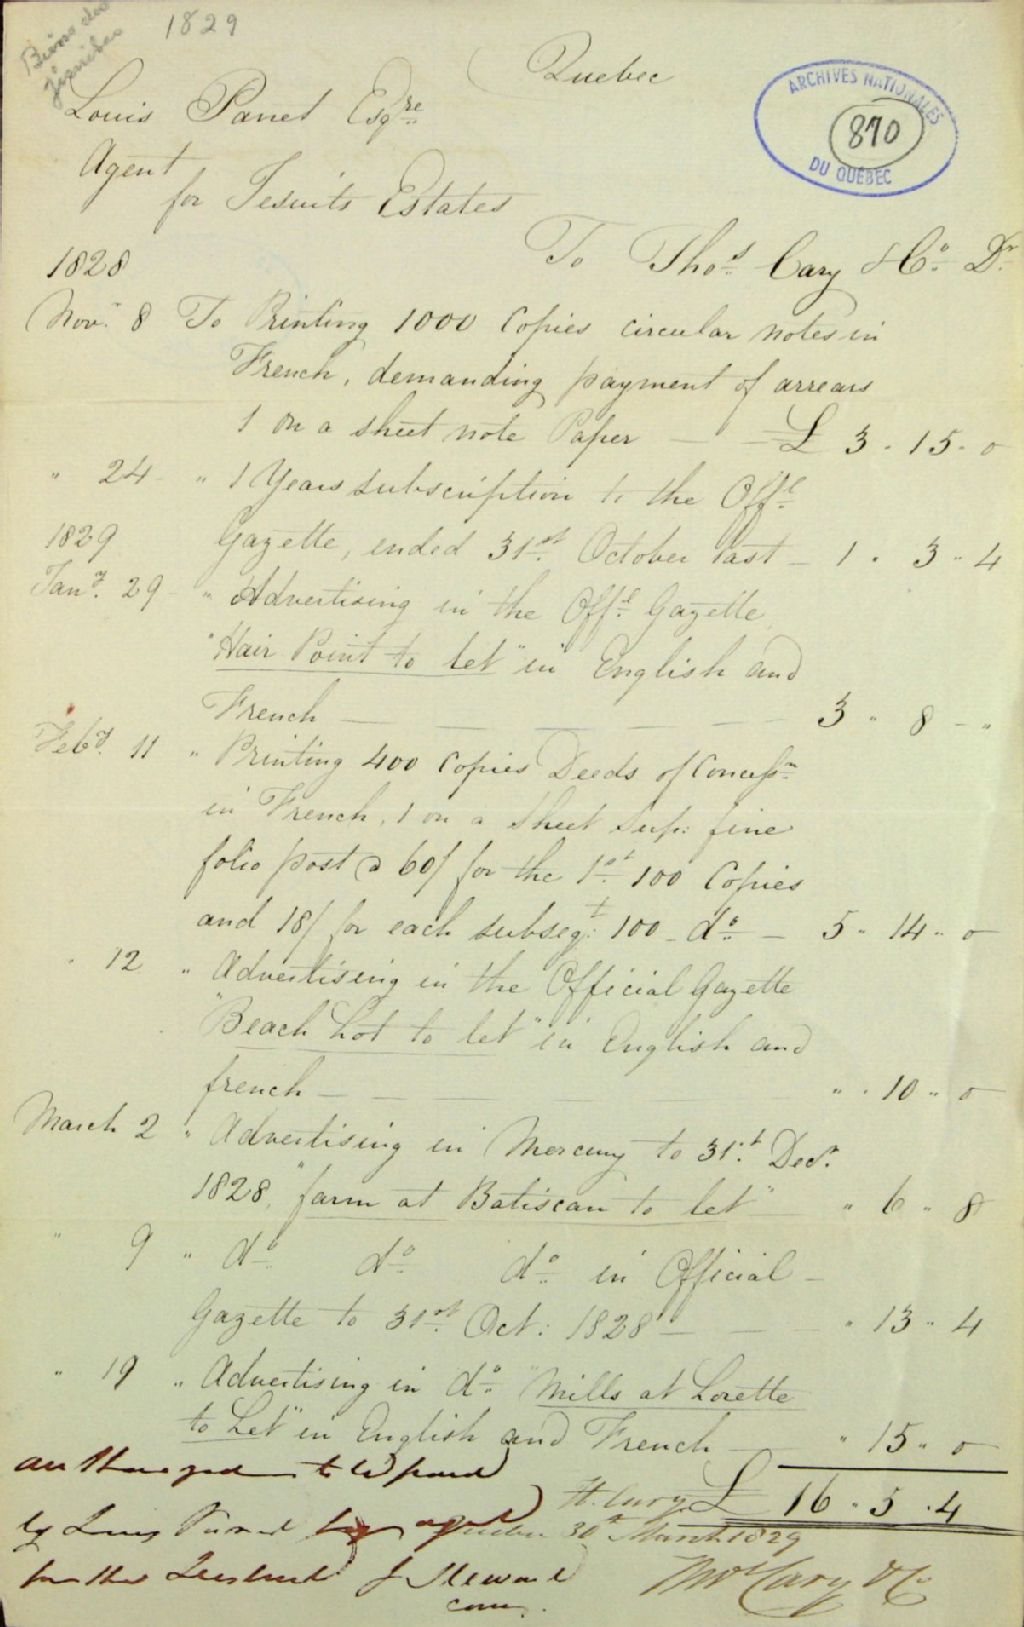 1829
Biens des
Jésuites
Quebec
ARCHIVES NATIONALES
870
DU QUÉBEC
Louis Panet Esqre
Agent
for Jesuits Estates
To Thos Cary & Co. Dr.
1828
Novr. 8 To Printing 1000 Copies circular notes in
French, demanding payment of arrears
1 on a sheet note Paper — — £ 3 . 15 . 0
" 24 " 1 Years subscription to the Offl.
1829 Gazette, ended 31st October last — 1 . 3 " 4
Jany. 29 " Advertising in the Offl. Gazette
"Hair Point to let" in English and
French — — — — 3 " 8 - "
Feby. 11 " Printing 400 Copies Deeds of Concessn.
in French, 1 on a Sheet sup: fine
folio post @ 60/ for the 1st 100 Copies
and 18/ for each subseqt: 100 - do. — 5 " 14 " 0
" 12 " Advertising in the Official Gazette
"Beach Lot to let" in English and
french — — " . 10 " 0
March 2 " Advertising in Mercury to 31st Decr.
1828, "farm at Batiscan to let" " 6 " 8
" 9 " do. do. do. in Official —
Gazette to 31st. Oct: 1828 — — " 13 " 4
" 19 " Advertising in do. "Mills at Lorette
to Let" in English and French — " 15 " 0
£ 16 . 5 . 4
to be paid
by Louis Panet
30th March 1829
Thos Cary & Co
J Stewart
com.